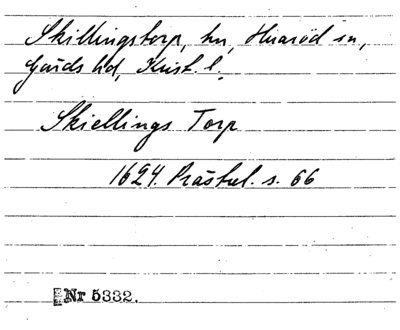 Skillingstorp, hn, Huaröd sn,
Gärds hd, Krist. l.
Skiellings Torp
1624. Prästrel. s. 66
Nr 5332.